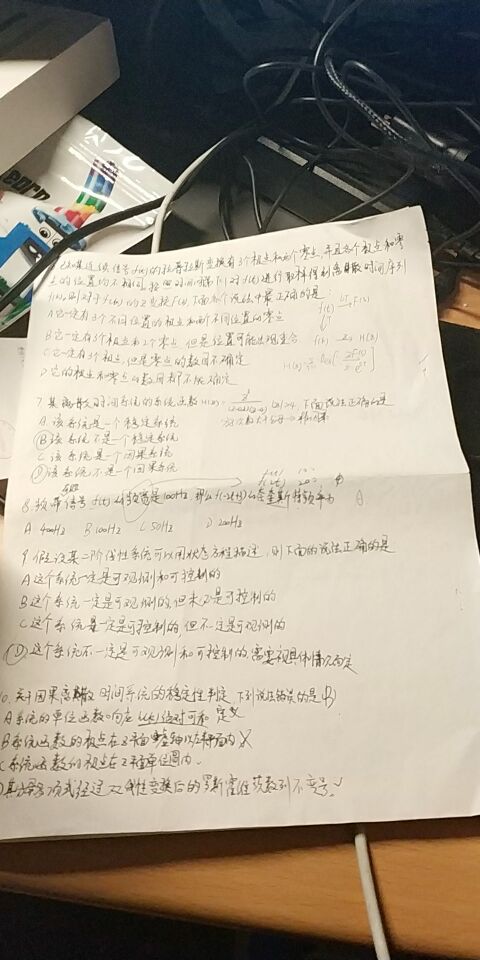 已知某连续信号f(t)的拉普拉斯变换有3个极点和两个零点,并且各个极点和零
点的位置均不相同,按照时间间隔[T]对f(t)进行取样得到离散时间序列
f(n),则对于f(n)的Z变换F(z)下面各个说法中最正确的是:
A它一定有3个不同位置的极点和两个不同位置的零点
f(t) LT F(s)
B它一定有3个极点和2个零点,但是位置可能出现重合
C它一定有3个极点,但是零点的数目不确定
D它的极点和零点的数目都不能确定
7某离散时间系统的系统函数H(z)= |z|>4,下面说法正确的是
A.该系统是一个稳定系统
B该系统不是一个稳定系统
C 该系统是一个因果系统
D该系统不是一个因果系统
8.频带有限信号f(t)的频宽是100Hz,那么f(-2t+1)的奈奎斯特频率为
A 400Hz B 100Hz C 50Hz D 200Hz
9.假设某二阶线性系统可以用状态方程描述,则下面的说法正确的是
A这个系统一定是可观测和可控制的
B这个系统一定是可观测的,但未必是可控制的
C这个系统是一定是可控制的,但不一定是可观测的
D.这个系统不一定是可观测和可控制的,需要视具体情况而定
10.关于因果离散时间系统的稳定性判定,下列说法错误的是 B)
A系统的单位函数响应h(k)绝对可和 定义
B系统函数的极点在Z平面虚轴以左平面内 X
C系统函数的极点在Z平面单位圆内.
D其分母多项式经过双线性变换后的罗斯霍维茨数列不变号.√